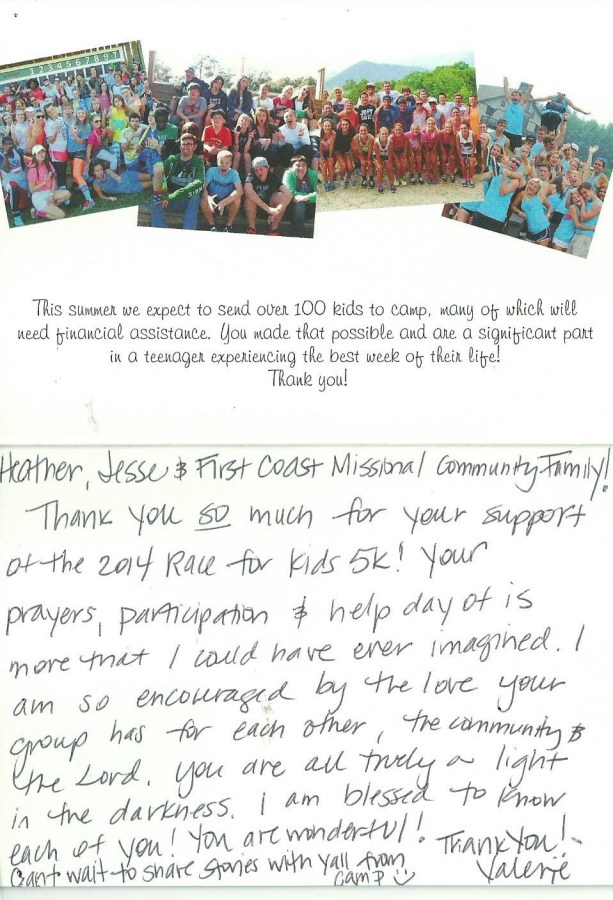 1 2 3 4 5 6 7 8 9 1
This summer we expect to send over 100 kids to camp, many of which will
need financial assistance. You made that possible and are a significant part
in a teenager experiencing the best week of their life!
Thank you!
Heather, Jesse & First Coast Missional Community Family!
Thank you so much for your support
at the 2014 Race for Kids 5k! Your
prayers, participation & help day of is
more that I could have ever imagined. I
am so encouraged by the love your
group has for each other, the community &
the Lord. You are all truly a light
in the darkness. I am blessed to know
each of you! You are wonderful! Thank You!
Cant wait to share stories with yall from
camp
Valerie